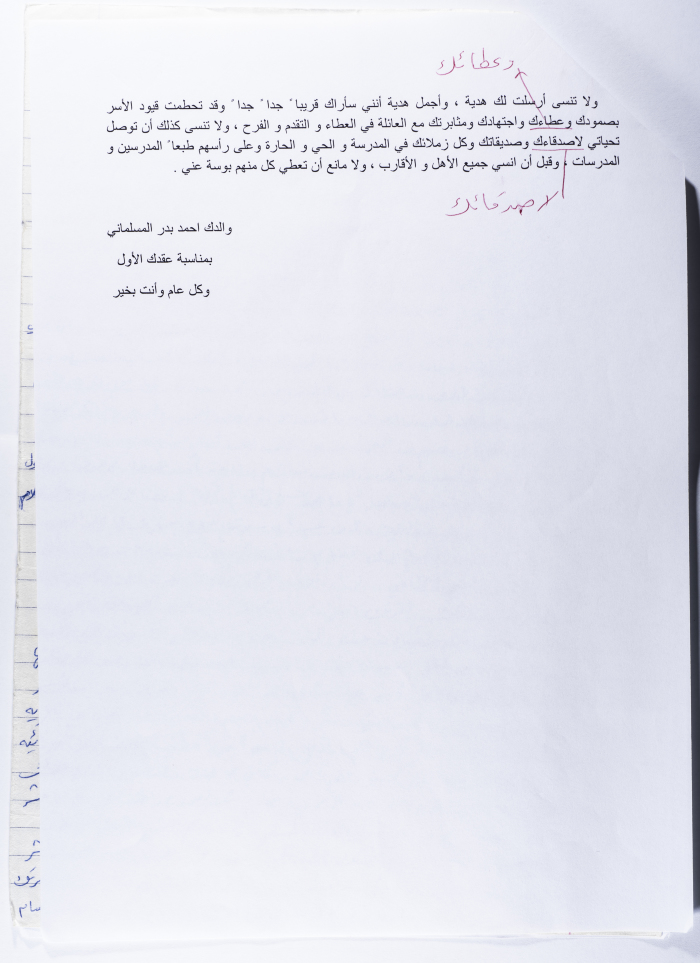 وعطائك
ولا تنسى أرسلت لك هدية ، وأجمل هدية أنني سأراك قريباً جداً جداً وقد تحطمت قيود الأسر
بصمودك وعطاءك واجتهادك ومثابرتك مع العائلة في العطاء و التقدم و الفرح ، ولا تنسى كذلك أن توصل
تحياتي لاصدقاءك وصديقاتك وكل زملائك في المدرسة و الحي و الحارة وعلى رأسهم طبعاً المدرسين و
المدرسات ، وقبل أن انسي جميع الأهل و الأقارب ، ولا مانع أن تعطي كل منهم بوسة عني .
لاصدقائك
والدك احمد بدر المسلماني
بمناسبة عقدك الأول
وكل عام وأنت بخير